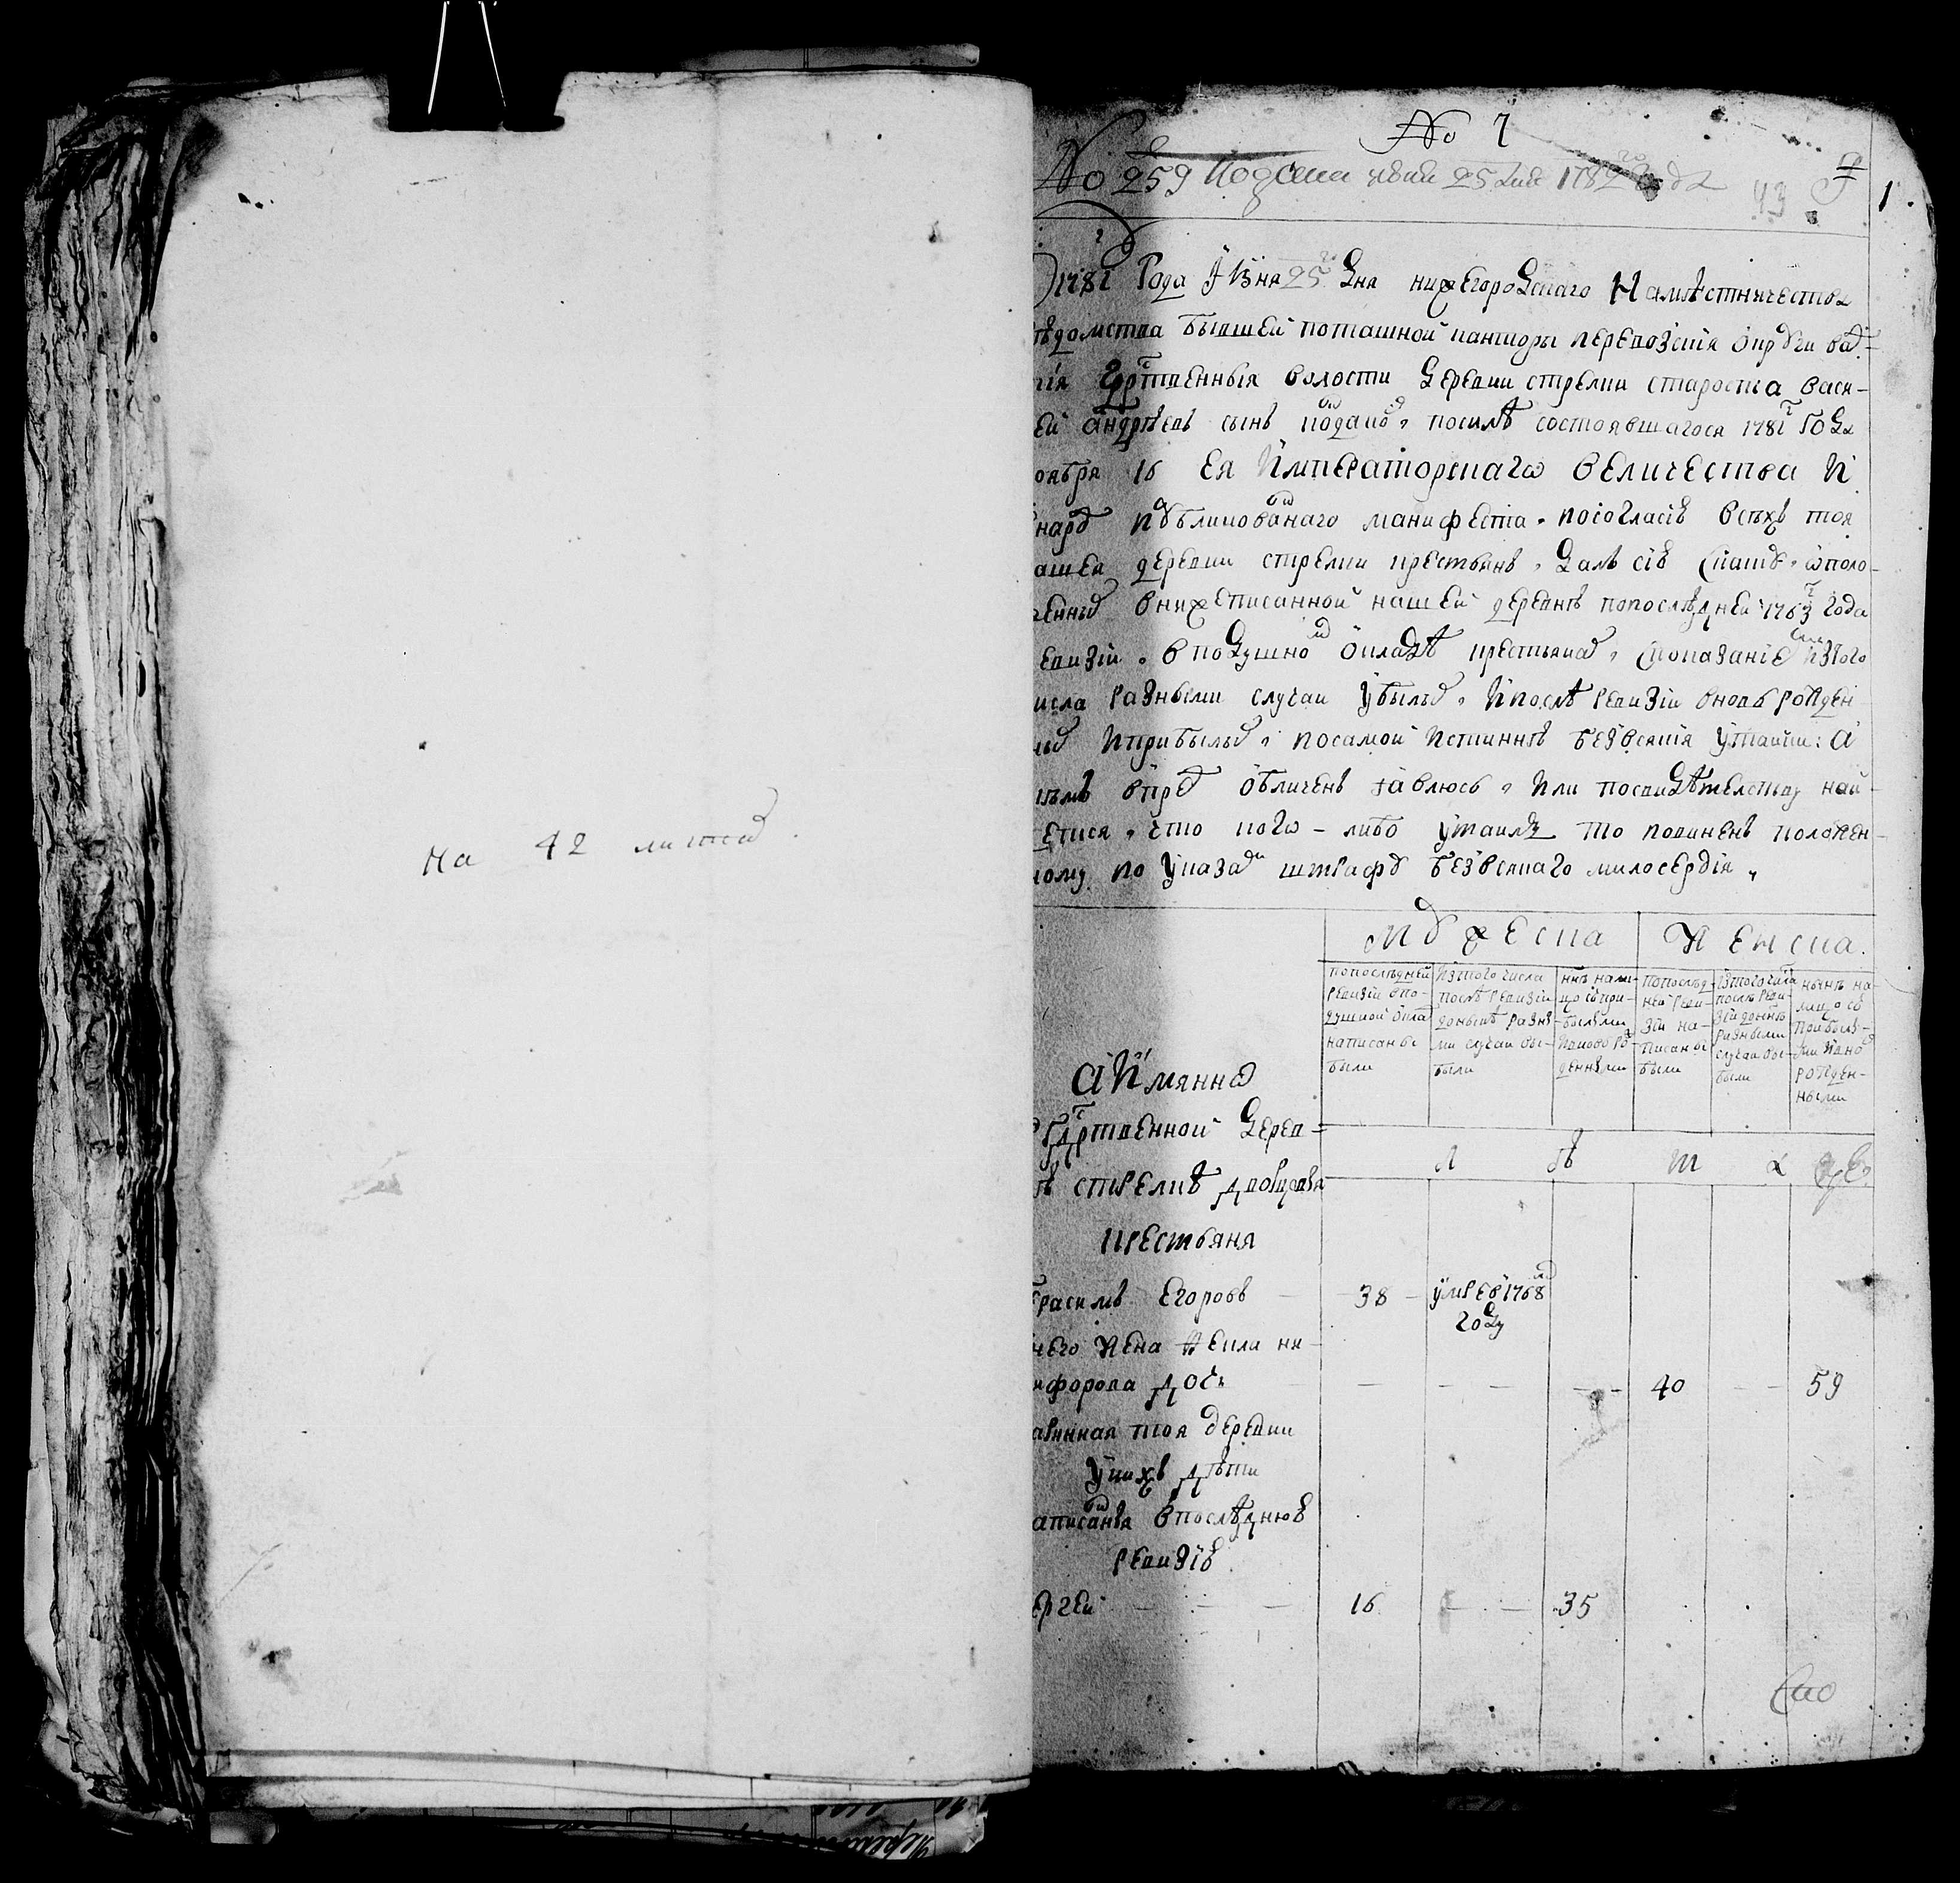 На 42 листах
№ 7
№ 259 Подана июня 25 дня 1782 го года
43
1
1782 г Года Июня 25 го Дня нижегородскаго Намѣстничества
вѣдомства бывшей поташной канторы
Гдрственныя волости Деревни стрелки староста Васи-
ей андрѣевъ сынъ посилѣ состоявшагося 1781 г Году
оября 16 Ея Императорскаго Величества И
нард публикованаго манифеста посогласию всѣхъ тоя
ашея деревни стрелки крестьянъ, Далъ сию скаску ѡполо-
женныхъ внижеписанной нашей деревнѣ попослѣдней 1763 г года
евизии, вподушномъ окладѣ крестьянах, споказаниемъ изтого
исла разными случаи убылыхъ, Ипослѣ ревизии вновь рожден
ныхъ Иприбылыхъ, посамой истиннѣ безвсякия утайки: а
впред обличенъ явлюсь, или посвидѣтелству най-
детися, что кого-либо утаилъ то повиненъ положен-
ному по указамъ штрафу безвсякаго милосердия,
Мужеска
Женска.
попослѣдней ревизии впо-душной окладъ написаны были
Изтого числа послѣ ревизии доныне разны-ми случаи вы-были
ннѣ нали-цо сѣпри-былыми Ивновь ро-жденными
попослѣд-ней реви-зии на-писаны были
Изтого числа послѣ реви-зии доннѣ разными случаи вы-были
нынѣ на-лицо съ прибылы-ми Ивно рожден-ными
аИмянно
Гдрственной Дерев-
нѣ стрелке дворцовыя
крестьяня
Л ѣ т а
ерасимъ Егоровъ — 38 — умре въ 1768 м году
него жена Fекла ни-
кифорова дочь — — — — 40 — 59
тоя деревни
уних дѣти
аписаныя впослѣднюю
ревизию
ергей — — — 16 — — 35
Ево